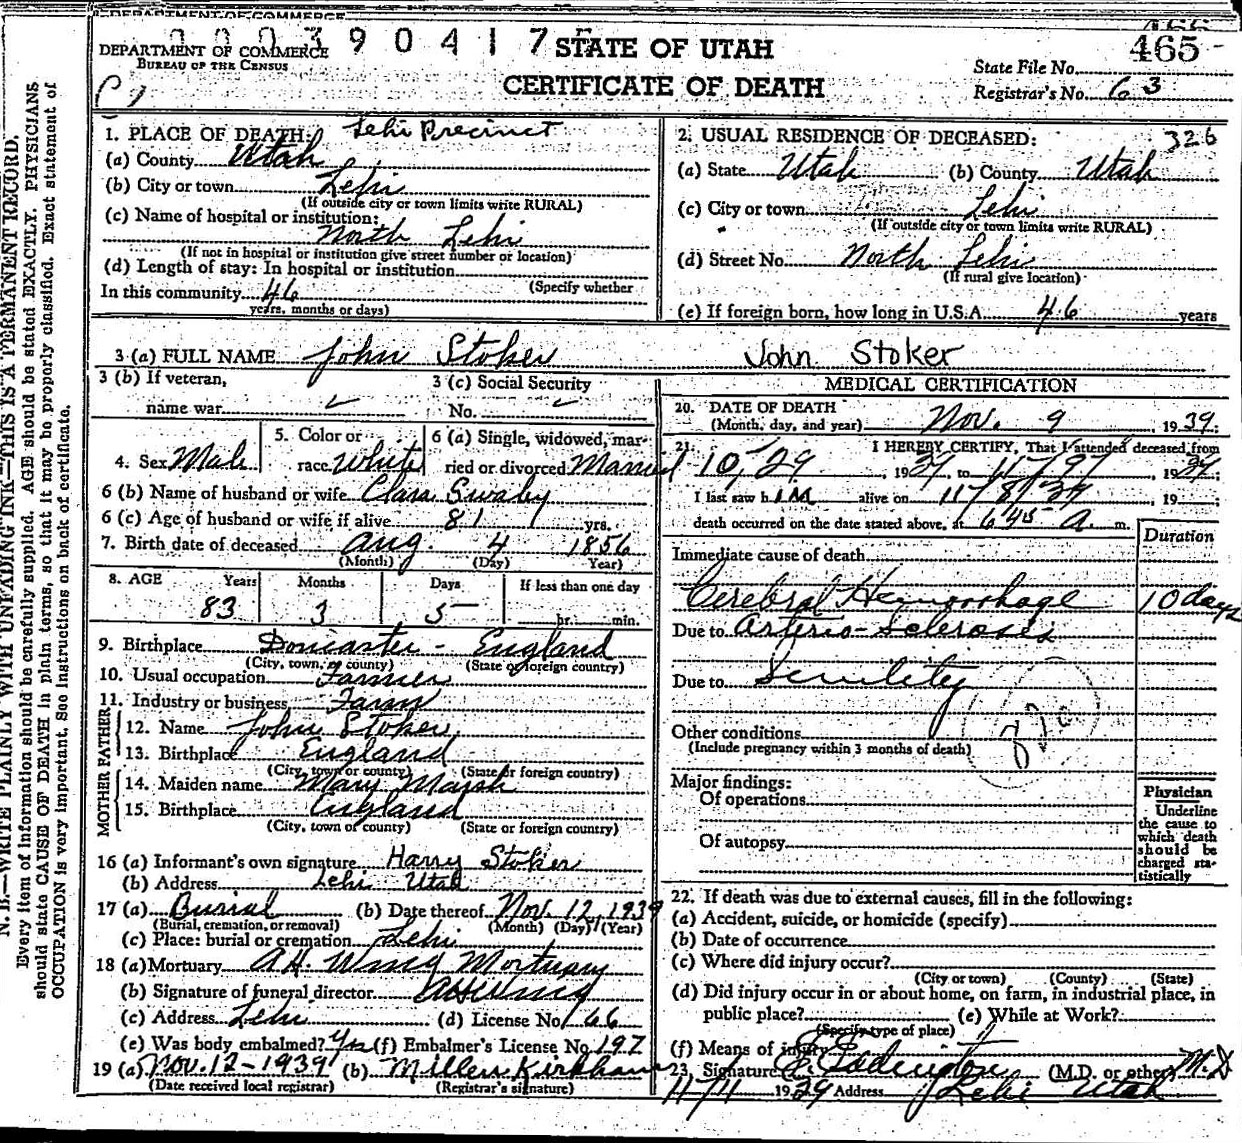 DEPARTMENT OF COMMERCE
0003904175
DEPARTMENT OF COMMERCE
BUREAU OF THE CENSUS
STATE OF UTAH
CERTIFICATE OF DEATH
465
State File No.
Registrar's No. 63
N. B.—WRITE PLAINLY WITH UNFADING INK—THIS IS A PERMANENT RECORD.
Every item of information should be carefully supplied. AGE should be stated EXACTLY. PHYSICIANS
should state CAUSE OF DEATH in plain terms, so that it may be properly classified. Exact statement of
OCCUPATION is very important. See instructions on back of certificate.
1. PLACE OF DEATH: Lehi Precinct
(a) County Utah
(b) City or town Lehi
(If outside city or town limits write RURAL)
(c) Name of hospital or institution:
North Lehi
(If not in hospital or institution give street number or location)
(d) Length of stay: In hospital or institution
(Specify whether
In this community 46
years, months or days)
2. USUAL RESIDENCE OF DECEASED: 326
(a) State Utah (b) County Utah
(c) City or town Lehi
(If outside city or town limits write RURAL)
(d) Street No. North Lehi
(If rural give location)
(e) If foreign born, how long in U.S.A. 46 years
3 (a) FULL NAME John Stoker John Stoker
3 (b) If veteran,
name war
3 (c) Social Security
No.
4. Sex Male
5. Color or
race White
6 (a) Single, widowed, mar-
ried or divorced Married
6 (b) Name of husband or wife Clara Swaby
6 (c) Age of husband or wife, if alive 81 yrs.
7. Birth date of deceased Aug. 4 1856
(Month) (Day) Year)
8. AGE Years Months Days If less than one day
83 3 5 hr. min.
9. Birthplace Doncaster - England
(City, town, or county) (State or foreign country)
10. Usual occupation Farmer
11. Industry or business Farm
FATHER
12. Name John Stoker
13. Birthplace England
(City, town or county) (State or foreign country)
MOTHER
14. Maiden name Mary Marsh
15. Birthplace England
(City, town or county) (State or foreign country)
16 (a) Informant's own signature Harry Stoker
(b) Address Lehi Utah
17 (a) Burial (b) Date thereof Nov. 12, 1939
(Burial, cremation, or removal) (Month) (Day) (Year)
(c) Place: burial or cremation Lehi
18 (a) Mortuary A.H. Wing Mortuary
(b) Signature of funeral director
(c) Address Lehi (d) License No. 166
(e) Was body embalmed? Yes (f) Embalmer's License No. 197
19 (a) Nov. 12-1939 (b)
(Date received local registrar) (Registrar's signature)
MEDICAL CERTIFICATION
20. DATE OF DEATH
(Month, day, and year) Nov. 9 1939.
21. I HEREBY CERTIFY, That I attended deceased from
10/29, 19 to 19
I last saw him alive on 11/8/39, 19
death occurred on the date stated above, at 645 A. m.
Duration
Immediate cause of death
Cerebral Hemorrhage 10 days
Due to Arterio-Sclerosis
Due to
Other conditions
(Include pregnancy within 3 months of death)
Major findings:
Of operations
Of autopsy
Physician
Underline
the cause to
which death
should be
charged sta-
tistically
22. If death was due to external causes, fill in the following:
(a) Accident, suicide, or homicide (specify)
(b) Date of occurrence
(c) Where did injury occur?
(City or town) (County) (State)
(d) Did injury occur in or about home, on farm, in industrial place, in
public place? (e) While at Work?
(Specify type of place)
(f) Means of injury
23. Signature (M.D. or other) M.D
19 39 Address Lehi Utah